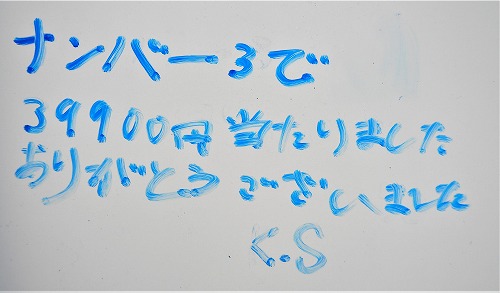 ナンバー3で
39900円当たりました
ありがとうございました
K.S